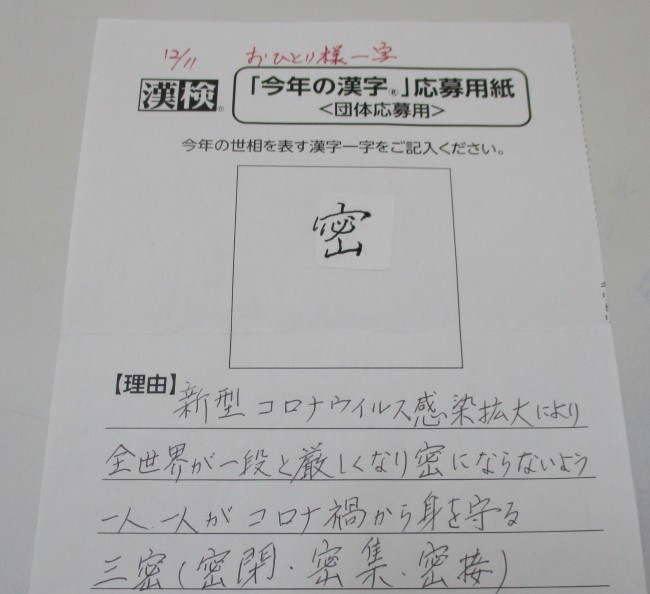 12/11 おひとり様一字
漢検 「今年の漢字®」応募用紙
<団体応募用>
今年の世相を表す漢字一字をご記入ください。
密
【理由】新型コロナウイルス感染拡大により
全世界が一段と厳しくなり密にならないよう
一人、一人がコロナ禍から身を守る
三密(密閉・密集・密接)